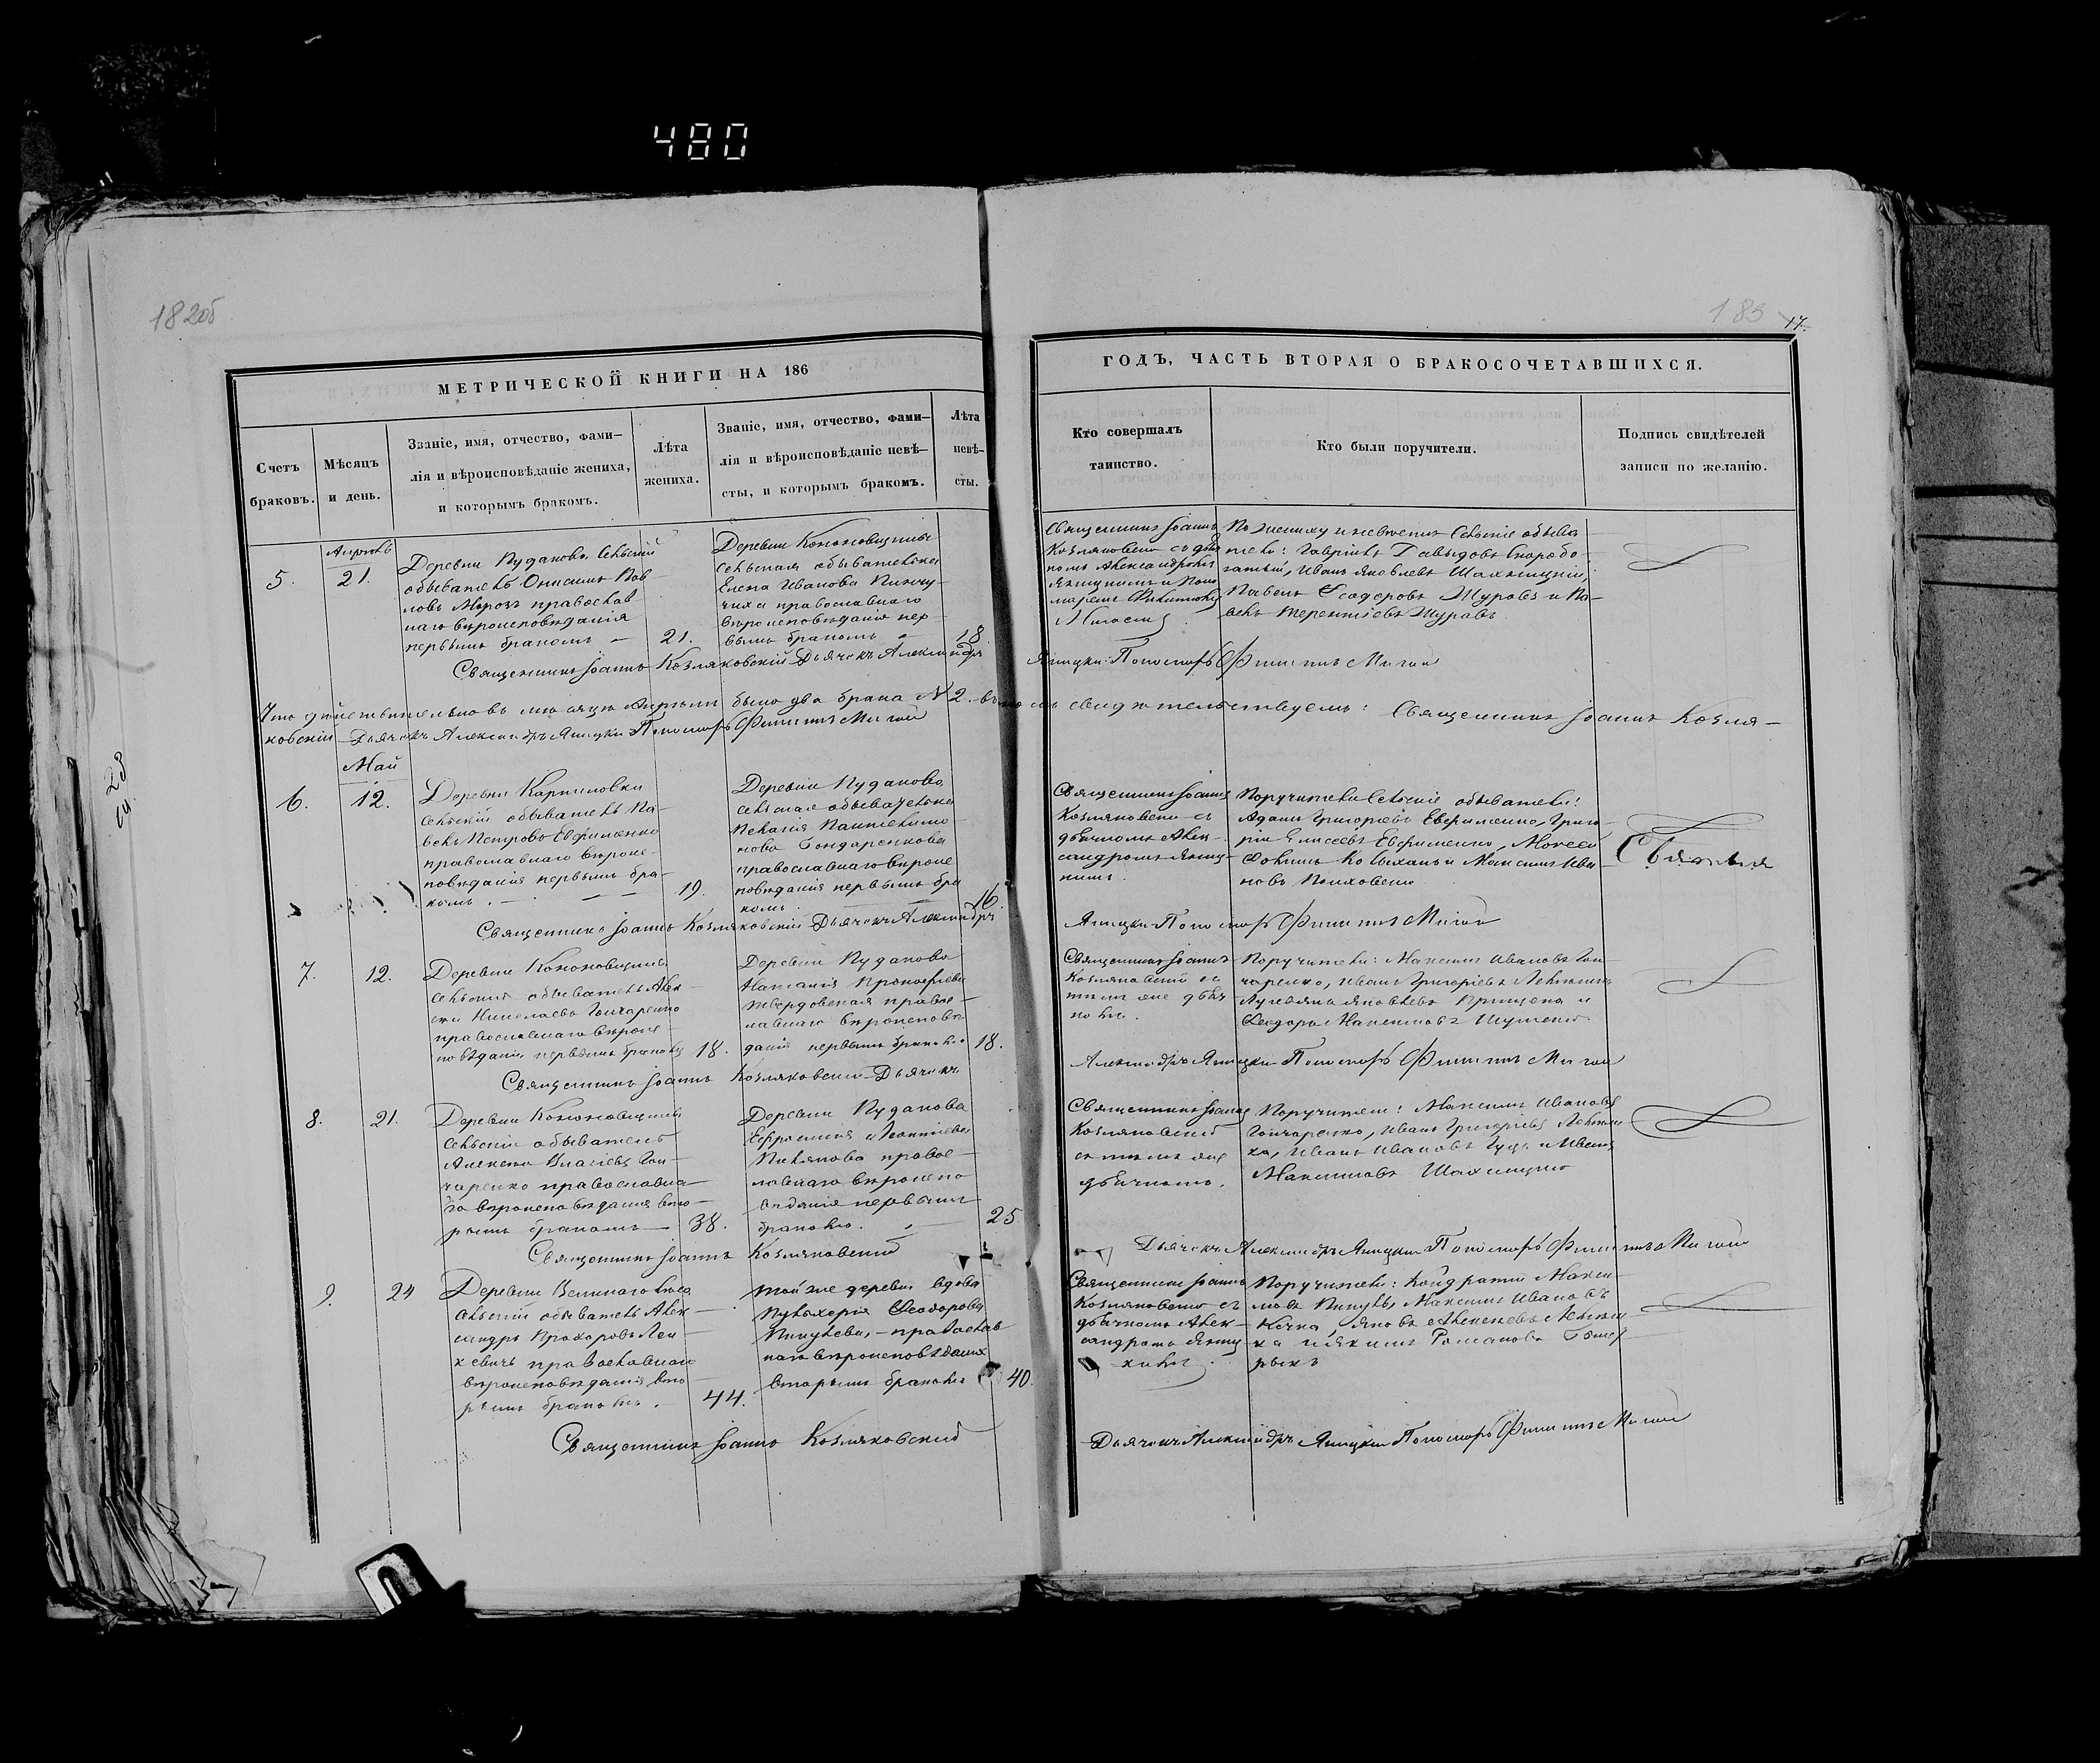 480
182об
183
17.
МЕТРИЧЕСКОЙ КНИГИ НА 186
ГОДЪ, ЧАСТЬ ВТОРАЯ О БРАКОСОЧЕТАВШИХСЯ.
Счетъ
браковъ.
Мѣсяцъ
и день.
Званіе, имя, отчество, фами—
лія и вѣроисповѣданіе жениха,
и которымъ бракомъ.
Лѣта
жениха.
Званіе, имя, отчество, фами—
лія и вѣроисповѣданіе невѣ—
сты, и которымъ бракомъ.
Лѣта
невѣ-
сты.
Кто совершалъ
таинство.
Кто были поручители.
Подпись свидѣтелей
записи по желанію.
5.
Апрѣль
21.
Деревни Пуданова Сельскій
обыватель Пав
ловъ Морозъ православ
наго вѣроисповѣданія
первымъ бракомъ —
21.
Деревни Кононовщины
Сельская обывателька
Елена Иванова
православнаго
вѣроисповѣданія пер—
вымъ бракомъ —
18.
Священникъ Іоаннъ
Козляковскій съ дья
комъ Александромъ
и Поно
маремъ Филиппомъ
Мигаемъ
По жениху и невѣстѣ Сельскіе обыва
тели: Гавріилъ Давыдовъ
Иванъ Яковлевъ
Павелъ Ѳеодоровъ Журавъ и Па—
велъ Терентіевъ Журавъ
Священникъ Іоаннъ Козляковскій Дьячекъ Александръ
Яницкій Пономарь Филиппъ Мигай
Что дѣйствительно въ мѣсяцѣ Апрѣли было два брака № 2. въ томъ свидѣтельствуемъ: Священникъ Іоаннъ Козля—
ковскій Дьячекъ Александръ Яницкій Пономарь Филиппъ Мигай
28
Май
6.
12.
Деревни Карпиловки
Сельскій обыватель Па—
велъ Петровъ Евфименко
православнаго вѣроис—
повѣданія первымъ бра—
комъ. — —
19.
Деревни Пуданова
сельская обывателька
Пелагія Пантелимо
нова Бондаренкова
православнаго вѣроис
повѣданія первымъ бра
комъ.
16
Священникъ Іоаннъ
Козляковскій съ
дьячкомъ Алек—
сандромъ Яниц—
кимъ.
Поручители Сельскіе обыватели:
Адамъ Григоріевъ Евфименко, Григо—
рій Елисеевъ Евфименко, Моисей
и Максимъ Ива
новъ
Священникъ Іоаннъ Козляковскій Дьячекъ Александръ
Яницкій Пономарь Филиппъ Мигай
7.
12.
Деревни Кононовщины
сельскій обыватель Алек—
сѣй Николаевъ Гончаренко
православнаго вѣроис—
повѣданія первымъ бракомъ
18.
Деревни Пуданова
Наталія Прокофіева
правос—
лавнаго вѣроисповѣ
данія первымъ бракомъ
18.
Священникъ Іоаннъ
Козляковскій съ
тѣмъ же дьяч
комъ.
Поручители: Максимъ Ивановъ Гон—
чаренко, Иванъ Григоріевъ
Яковлевъ и
Ѳеодоръ Максимовъ
Священникъ Іоаннъ Козляковскій Дьячекъ
Александръ Яницкій Пономарь Филиппъ Мигай
8.
21.
Деревни Кононовщины
Сельскій обыватель
Алексѣй Власіевъ Гон—
чаренко православна—
го вѣроисповѣданія вто—
рымъ бракомъ —
38.
Деревни Пуданова
Ефросинія Леонтіева
правос—
лавнаго вѣроиспо
вѣданія первымъ
бракомъ.
25
Священникъ Іоаннъ
Козляковскій
съ тѣмъ же
дьячкомъ.
Поручители: Максимъ Ивановъ
Гончаренко, Иванъ Григоріевъ
Иванъ Ивановъ и Иванъ
Максимовъ
Священникъ Іоаннъ Козляковскій
Дьячекъ Александръ Яницкій Пономарь Филиппъ Мигай
9.
24
Деревни
Сельскій обыватель Алек—
сандръ Прохоровъ
православнаго
вѣроисповѣданія вто—
рымъ бракомъ.
44.
той же деревни вдова
Пульхерія Ѳеодорова
православ
наго вѣроисповѣданія
вторымъ бракомъ
40.
Священникъ Іоаннъ
Козляковскій съ
дьячкомъ Алек—
сандромъ Яниц
кимъ.
Поручители: Кондратій Макси—
мовъ Максимъ Ивановъ
Яковъ Алексѣевъ
Романовъ
Священникъ Іоаннъ Козляковскій
Дьячекъ Александръ Яницкій Пономарь Филиппъ Мигай